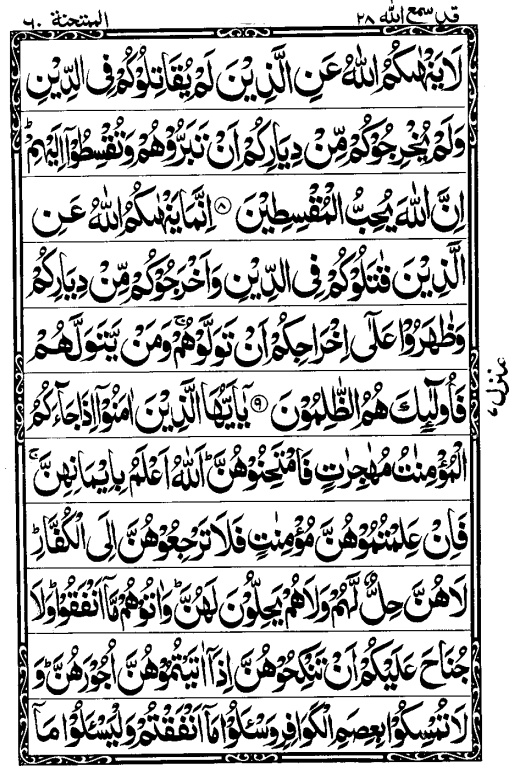 قد سمع الله ٢٨
الممتحنة ٦٠
لَا يَنْهٰىكُمُ اللّٰهُ عَنِ الَّذِيْنَ لَمْ يُقَاتِلُوْكُمْ فِى الدِّيْنِ
وَلَمْ يُخْرِجُوْكُمْ مِّنْ دِيَارِكُمْ اَنْ تَبَرُّوْهُمْ وَتُقْسِطُوْۤا اِلَيْهِمْ ؕ
اِنَّ اللّٰهَ يُحِبُّ الْمُقْسِطِيْنَ ۝٨ اِنَّمَا يَنْهٰىكُمُ اللّٰهُ عَنِ
الَّذِيْنَ قٰتَلُوْكُمْ فِى الدِّيْنِ وَاَخْرَجُوْكُمْ مِّنْ دِيَارِكُمْ
وَظٰهَرُوْا عَلٰۤى اِخْرَاجِكُمْ اَنْ تَوَلَّوْهُمْ ۚ وَمَنْ يَّتَوَلَّهُمْ
فَاُولٰٓئِكَ هُمُ الظّٰلِمُوْنَ ۝٩ يٰۤاَيُّهَا الَّذِيْنَ اٰمَنُوْۤا اِذَا جَآءَكُمُ
الْمُؤْمِنٰتُ مُهٰجِرٰتٍ فَامْتَحِنُوْهُنَّ ؕ اَللّٰهُ اَعْلَمُ بِاِيْمَانِهِنَّ ۚ
فَاِنْ عَلِمْتُمُوْهُنَّ مُؤْمِنٰتٍ فَلَا تَرْجِعُوْهُنَّ اِلَى الْكُفَّارِ ؕ
لَا هُنَّ حِلٌّ لَّهُمْ وَلَا هُمْ يَحِلُّوْنَ لَهُنَّ ؕ وَاٰتُوْهُمْ مَّاۤ اَنْفَقُوْا ؕ وَلَا
جُنَاحَ عَلَيْكُمْ اَنْ تَنْكِحُوْهُنَّ اِذَاۤ اٰتَيْتُمُوْهُنَّ اُجُوْرَهُنَّ ؕ وَ
لَا تُمْسِكُوْا بِعِصَمِ الْكَوَافِرِ وَسْـَٔلُوْا مَاۤ اَنْفَقْتُمْ وَلْيَسْـَٔلُوْا مَاۤ
منزل ٧